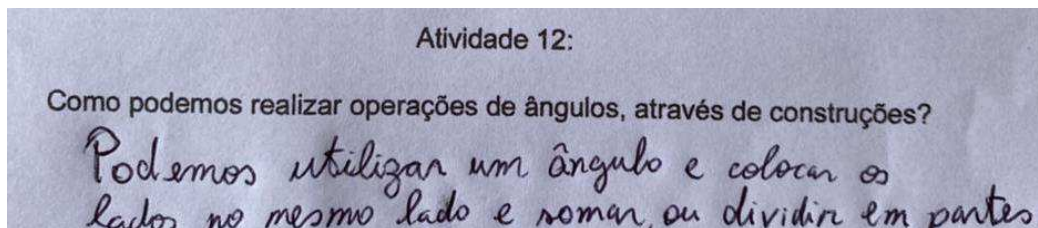 Atividade 12:
Como podemos realizar operações de ângulos, através de construções?
Podemos utilizar um ângulo e colocar os
lados no mesmo lado e somar, ou dividir em partes